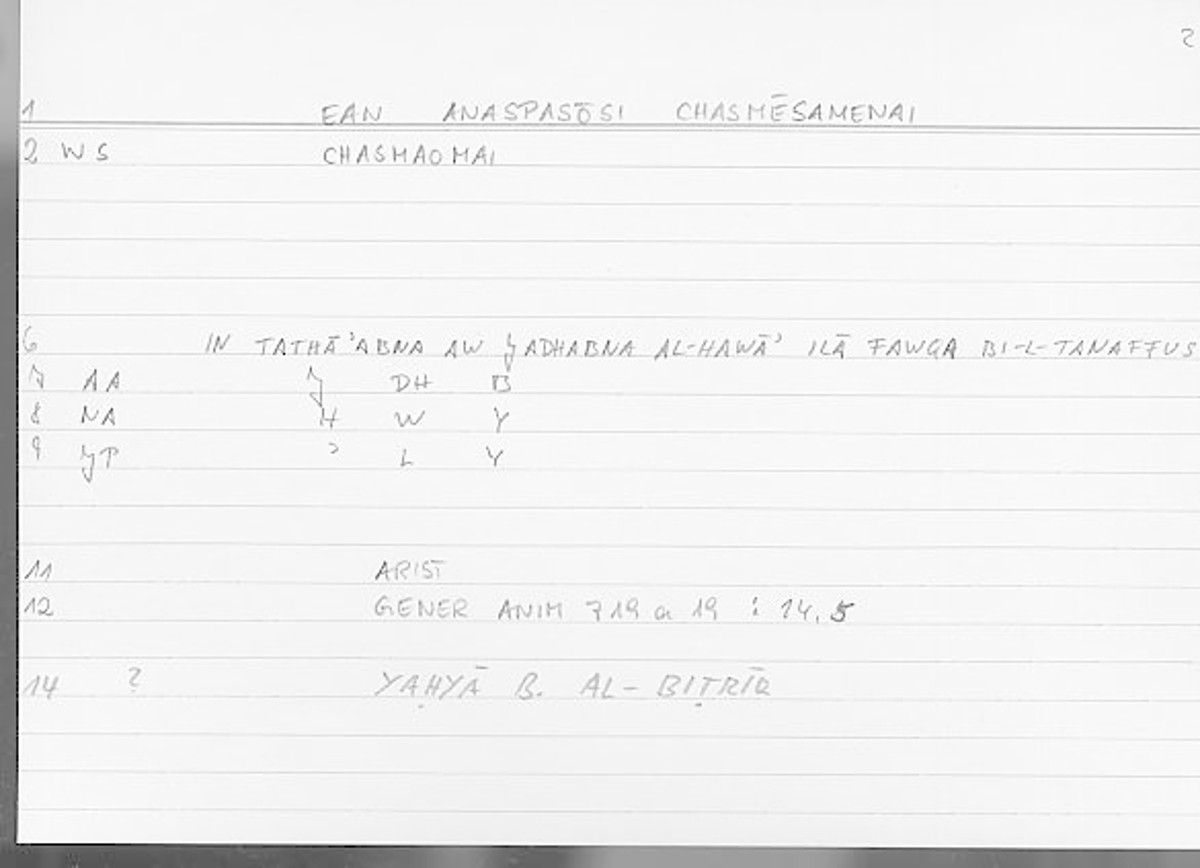 2
1 EAN ANASPASŌSI CHASMĒSAMENAI
2 WS CHASMAOMAI
6 IN TATHĀʾABNA AW JADHABNA AL-HAWĀʾ ILĀ FAWQA BI-L-TANAFFUS
7 AA J DH B
8 NA H W Y
9 JP ʾ L Y
11 ARIST
12 GENER ANIM 719 a 19 : 14.5
14 ? YAḤYĀ B. AL-BIṬRĪQ